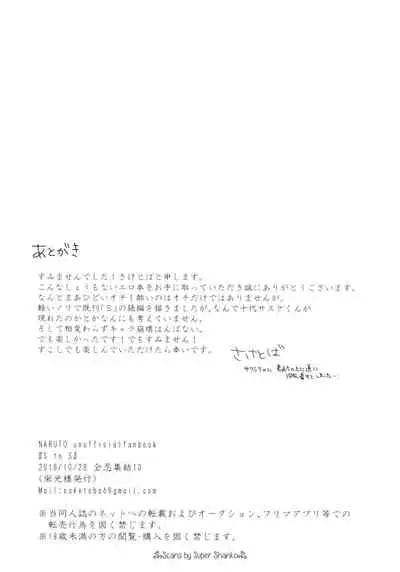 あとがき
すみませんでした!さけとばと申します。
こんなしょうもないエロ本をお手に取っていただき誠にありがとうございます。
なんとまあひどいオチ!酷いのはオチだけではありませんが。
軽いノリで既刊「S」の続編を描きましたが、なんで十代サスケくんが
現れたのかとかなんにも考えていません。
そして相変わらずキャラ崩壊はんぱない。
でも楽しかったです!でもすみません!
すこしでも楽しんでいただけたら幸いです。
さけとば
NARUTO unofficialfanbook
『S to S』
2018/10/28 全忍集結10
(栄光様発行)
※当同人誌のネットへの転載およびオークション、フリマアプリ等での
転売行為を固く禁じます。
※18歳未満の方の閲覧・購入を固く禁じます。
Scans by Super Shanko